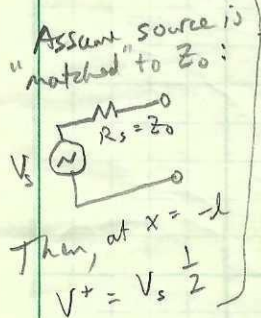 Assume source is
"matched" to Z₀ :
Rs = Z₀
Vs
Then, at x = -l
V⁺ = Vs 1/2